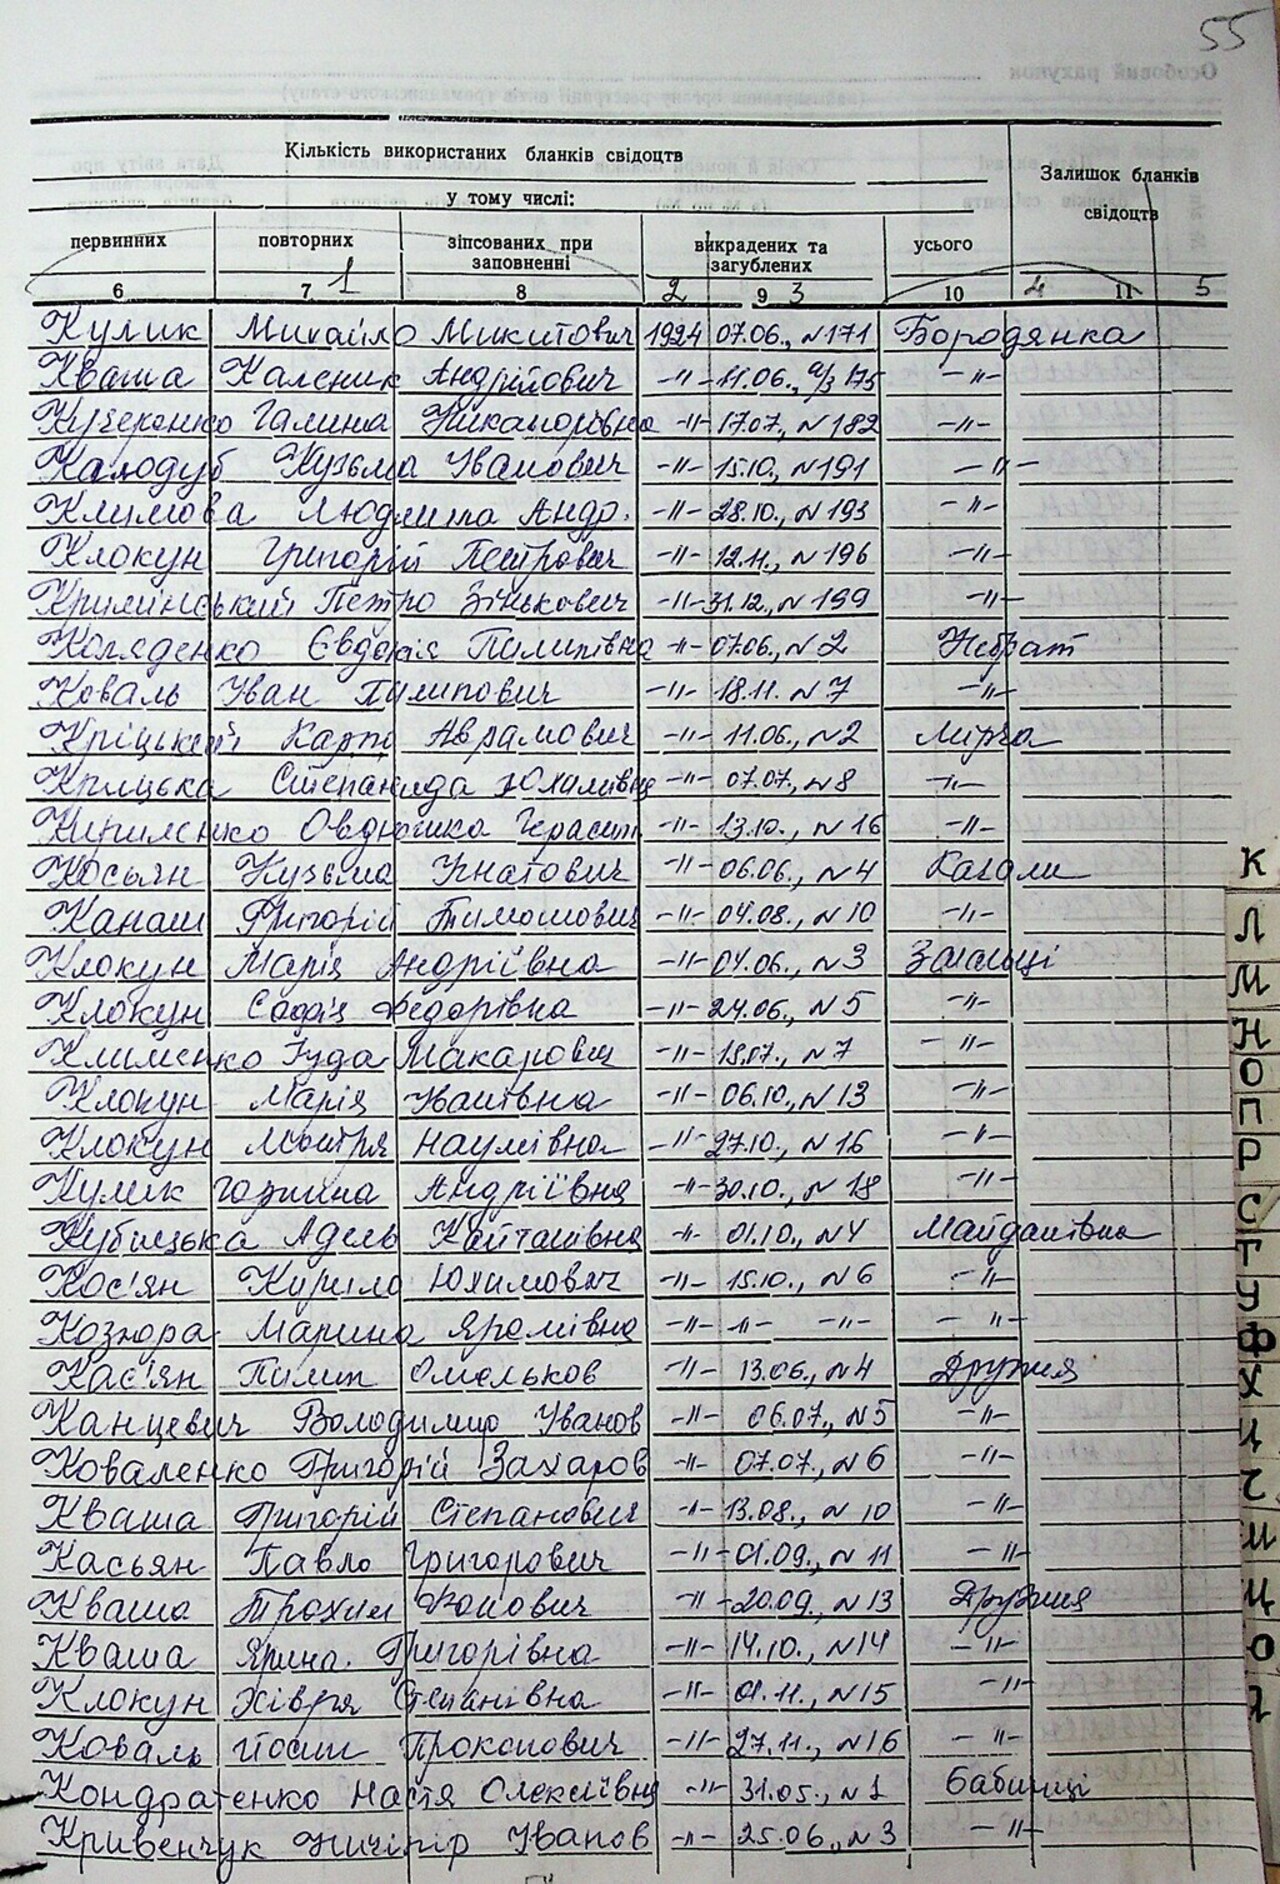 55
Кількість використаних бланків свідоцтв
Залишок бланків свідоцтв
у тому числі:
первинних повторних зіпсованих при заповненні викрадених та загублених усього
6 7 1 8 2 9 3 10 4 11 5
Кулик Михайло Микитович 1924 07.06., N171 Бородянка
Кваша Каленик Андрійович -"- 11.06., а/з 175 -"-
Кучеренко Галина Никанорівна -"- 17.07., N 182 -"-
Калодуб Кузьма Іванович -"- 15.10., N191 -"-
Климова Людмила Андр. -"- 28.10., N 193 -"-
Клокун Григорій Петрович -"- 12.11., N 196 -"-
Кримінський Петро Зінькович -"- 31.12., N 199 -"-
Коляденко Євдокія Пилипівна -"- 07.06., N 2 Небрат
Коваль Іван Пилипович -"- 18.11. N 7 -"-
Кріцький Карпо Аврамович -"- 11.06., N2 Мирча
Крицька Степанида Юхимівна -"- 07.07., N8 -"-
Кириленко Овдюшка Герасим -"- 13.10., N 16 -"-
Косьян Кузьма Ігнатович -"- 06.06., N 4 Качали
Канаш Григорій Тимошович -"- 04.08., N 10 -"-
Клокун Марія Андріївна -"- 04.06., N 3 Загальці
Клокун Софія Федорівна -"- 24.06., N 5 -"-
Клименко Іуда Макарович -"- 18.07., N 7 -"-
Клокун Марія Іванівна -"- 06.10., N 13 -"-
Клокун Мотря Наумівна -"- 27.10., N 16 -"-
Кулик Галина Андріївна -"- 30.10., N 18 -"-
Кубицька Адель Кайтанівна -"- 01.10., N4 Майданівка
Кос'ян Кирило Юхимович -"- 15.10., N 6 -"-
Козюра Марина Яремівна -"- -"- -"- -"-
Кас'ян Пилип Омельков -"- 13.06., N4 Дружня
Канцевич Володимир Іванов -"- 06.07., N5 -"-
Коваленко Григорій Захаров -"- 07.07., N 6 -"-
Кваша Григорій Степанович -"- 13.08., N 10 -"-
Касьян Павло Григорович -"- 01.09., N 11 -"-
Кваша Трохим Фокович -"- 20.09., N 13 Дружня
Кваша Ярина Григорівна -"- 14.10., N14 -"-
Клокун Хівря Степанівна -"- 01.11., N15 -"-
Коваль Йосип Прокопович -"- 27.11., N16 -"-
Кондратенко Настя Олексіївна -"- 31.05., N 1 Бабинці
Кривенчук Ничіпір Іванов -"- 25.06., N 3 -"-
К
Л
М
Н
О
П
Р
С
Т
У
Ф
Х
Ц
Ч
Ш
Щ
Ю
Я